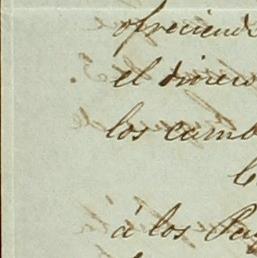 ofreciend
el dinero
los camb
á los Pa